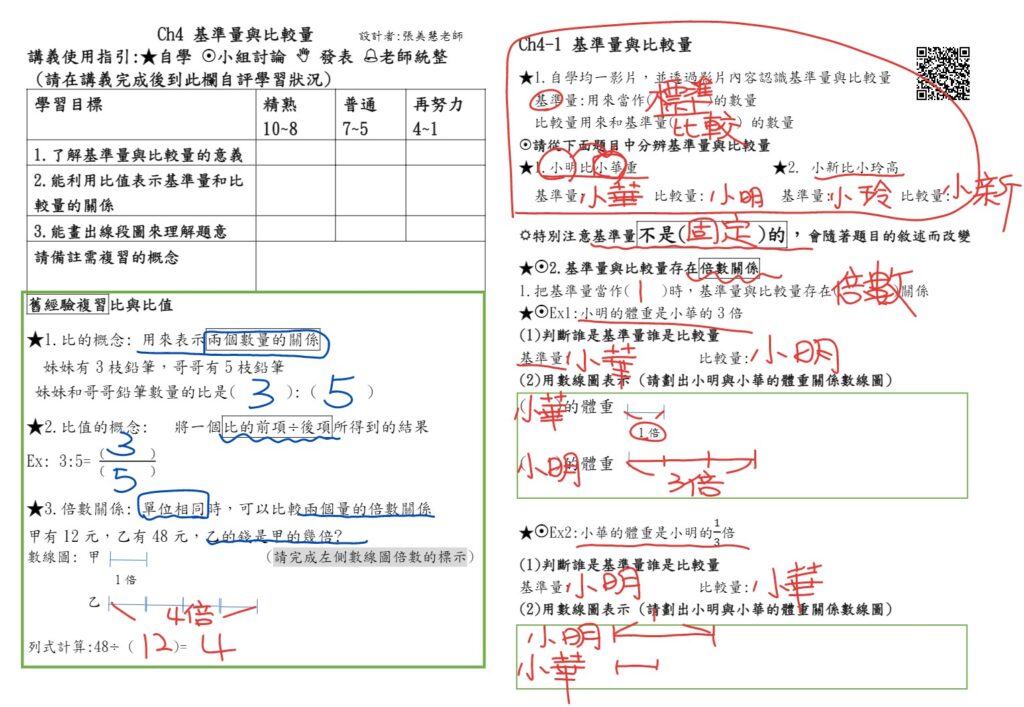 Ch4 基準量與比較量 設計者:張美慧老師
講義使用指引:★自學 ⊙小組討論 發表 老師統整
(請在講義完成後到此欄自評學習狀況)
學習目標 精熟 10~8 普通 7~5 再努力 4~1
1.了解基準量與比較量的意義
2.能利用比值表示基準量和比較量的關係
3.能畫出線段圖來理解題意
請備註需複習的概念
舊經驗複習比與比值
★1.比的概念: 用來表示兩個數量的關係
妹妹有 3 枝鉛筆,哥哥有 5 枝鉛筆
妹妹和哥哥鉛筆數量的比是( 3 ):( 5 )
★2.比值的概念: 將一個比的前項÷後項所得到的結果
Ex: 3:5= (3)/(5)
★3.倍數關係: 單位相同時,可以比較兩個量的倍數關係
甲有 12 元,乙有 48 元,乙的錢是甲的幾倍?
數線圖: 甲 (請完成左側數線圖倍數的標示)
1 倍
乙
4倍
列式計算:48÷ ( 12 )= 4
Ch4-1 基準量與比較量
★1.自學均一影片,並透過影片內容認識基準量與比較量
基準量:用來當作(標準)的數量
比較量用來和基準量(比較) 的數量
⊙請從下面題目中分辨基準量與比較量
★1.小明比小華重 ★2. 小新比小玲高
基準量:小華 比較量:小明 基準量:小玲 比較量:小新
☼特別注意基準量不是(固定)的,會隨著題目的敘述而改變
★⊙2.基準量與比較量存在倍數關係
1.把基準量當作( 1 )時,基準量與比較量存在(倍數)關係
★⊙Ex1:小明的體重是小華的 3 倍
(1)判斷誰是基準量誰是比較量
基準量:小華 比較量:小明
(2)用數線圖表示 (請劃出小明與小華的體重關係數線圖)
(小華的體重
1 倍
小明的體重
3倍
★⊙Ex2:小華的體重是小明的1/3倍
(1)判斷誰是基準量誰是比較量
基準量:小明 比較量:小華
(2)用數線圖表示 (請劃出小明與小華的體重關係數線圖)
1
小明
小華